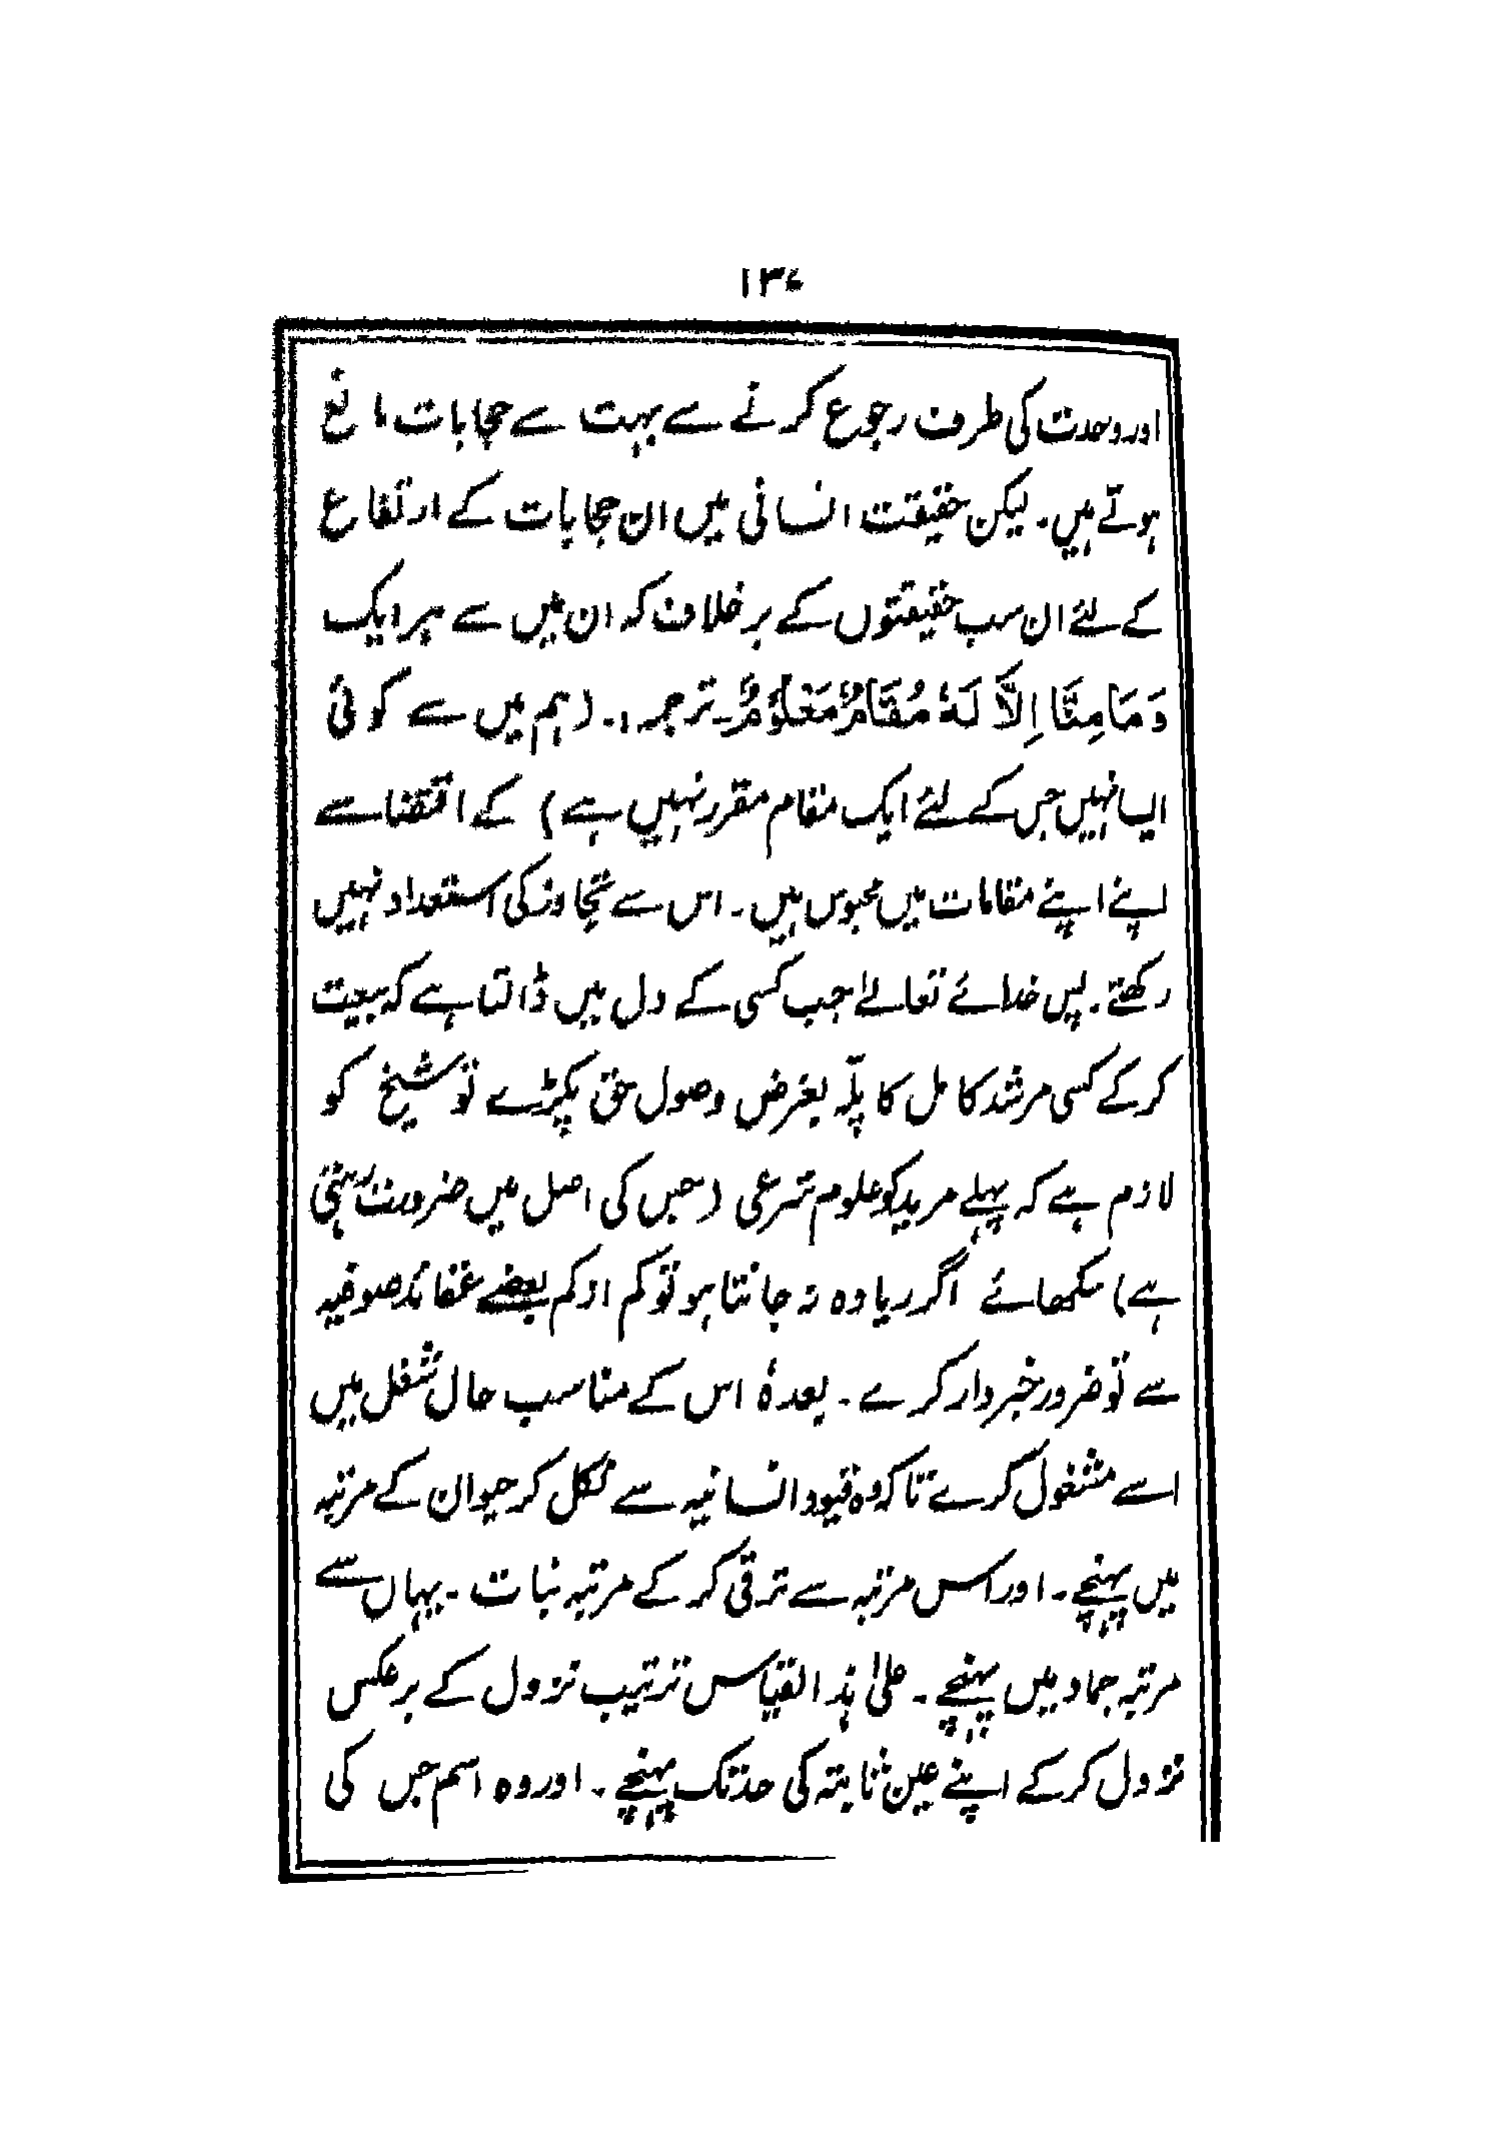 ۱۳۷
اور وحدت کی طرف رجوع کرنے سے بہت سے حجابات مانع
ہوتے ہیں۔ لیکن حقیقت انسانی میں ان حجابات کے ارتفاع
کے لئے ان سب حقیقتوں کے برخلاف کہ ان میں سے ہر ایک
وَمَا مِنَّا إِلَّا لَهٗ مُقَامٌ مَعْلُوْمٌ۔ ترجمہ:۔ (ہم میں سے کوئی
ایسا نہیں جس کے لئے ایک مقام مقرر نہیں ہے) کے اقتضا سے
اپنے اپنے مقامات میں محبوس ہیں۔ اس سے تجاوز کی استعداد نہیں
رکھتے۔ پس خدائے تعالےٰ جب کسی کے دل میں ڈالتا ہے کہ بیعت
کر کے کسی مرشد کامل کا پلّہ بغرض وصول حق پکڑے تو شیخ کو
لازم ہے کہ پہلے مرید کو علوم شرعی (جس کی اصل میں ضرورت رہتی
ہے) سکھائے اگر زیادہ نہ جانتا ہو تو کم از کم بعضے عقائد صوفیہ
سے تو ضرور خبردار کرے۔ بعدہٗ اس کے مناسب حال شغل میں
اسے مشغول کرے تاکہ وہ قیود انسانیہ سے نکل کر حیوان کے مرتبہ
میں پہنچے۔ اور اس مرتبہ سے ترقی کر کے مرتبہ نبات۔ یہاں سے
مرتبہ جماد میں پہنچے۔ علیٰ ہذا القیاس ترتیب نزول کے برعکس
نزول کر کے اپنے عین ثابتہ کی حد تک پہنچے۔ اور وہ اسم جس کی